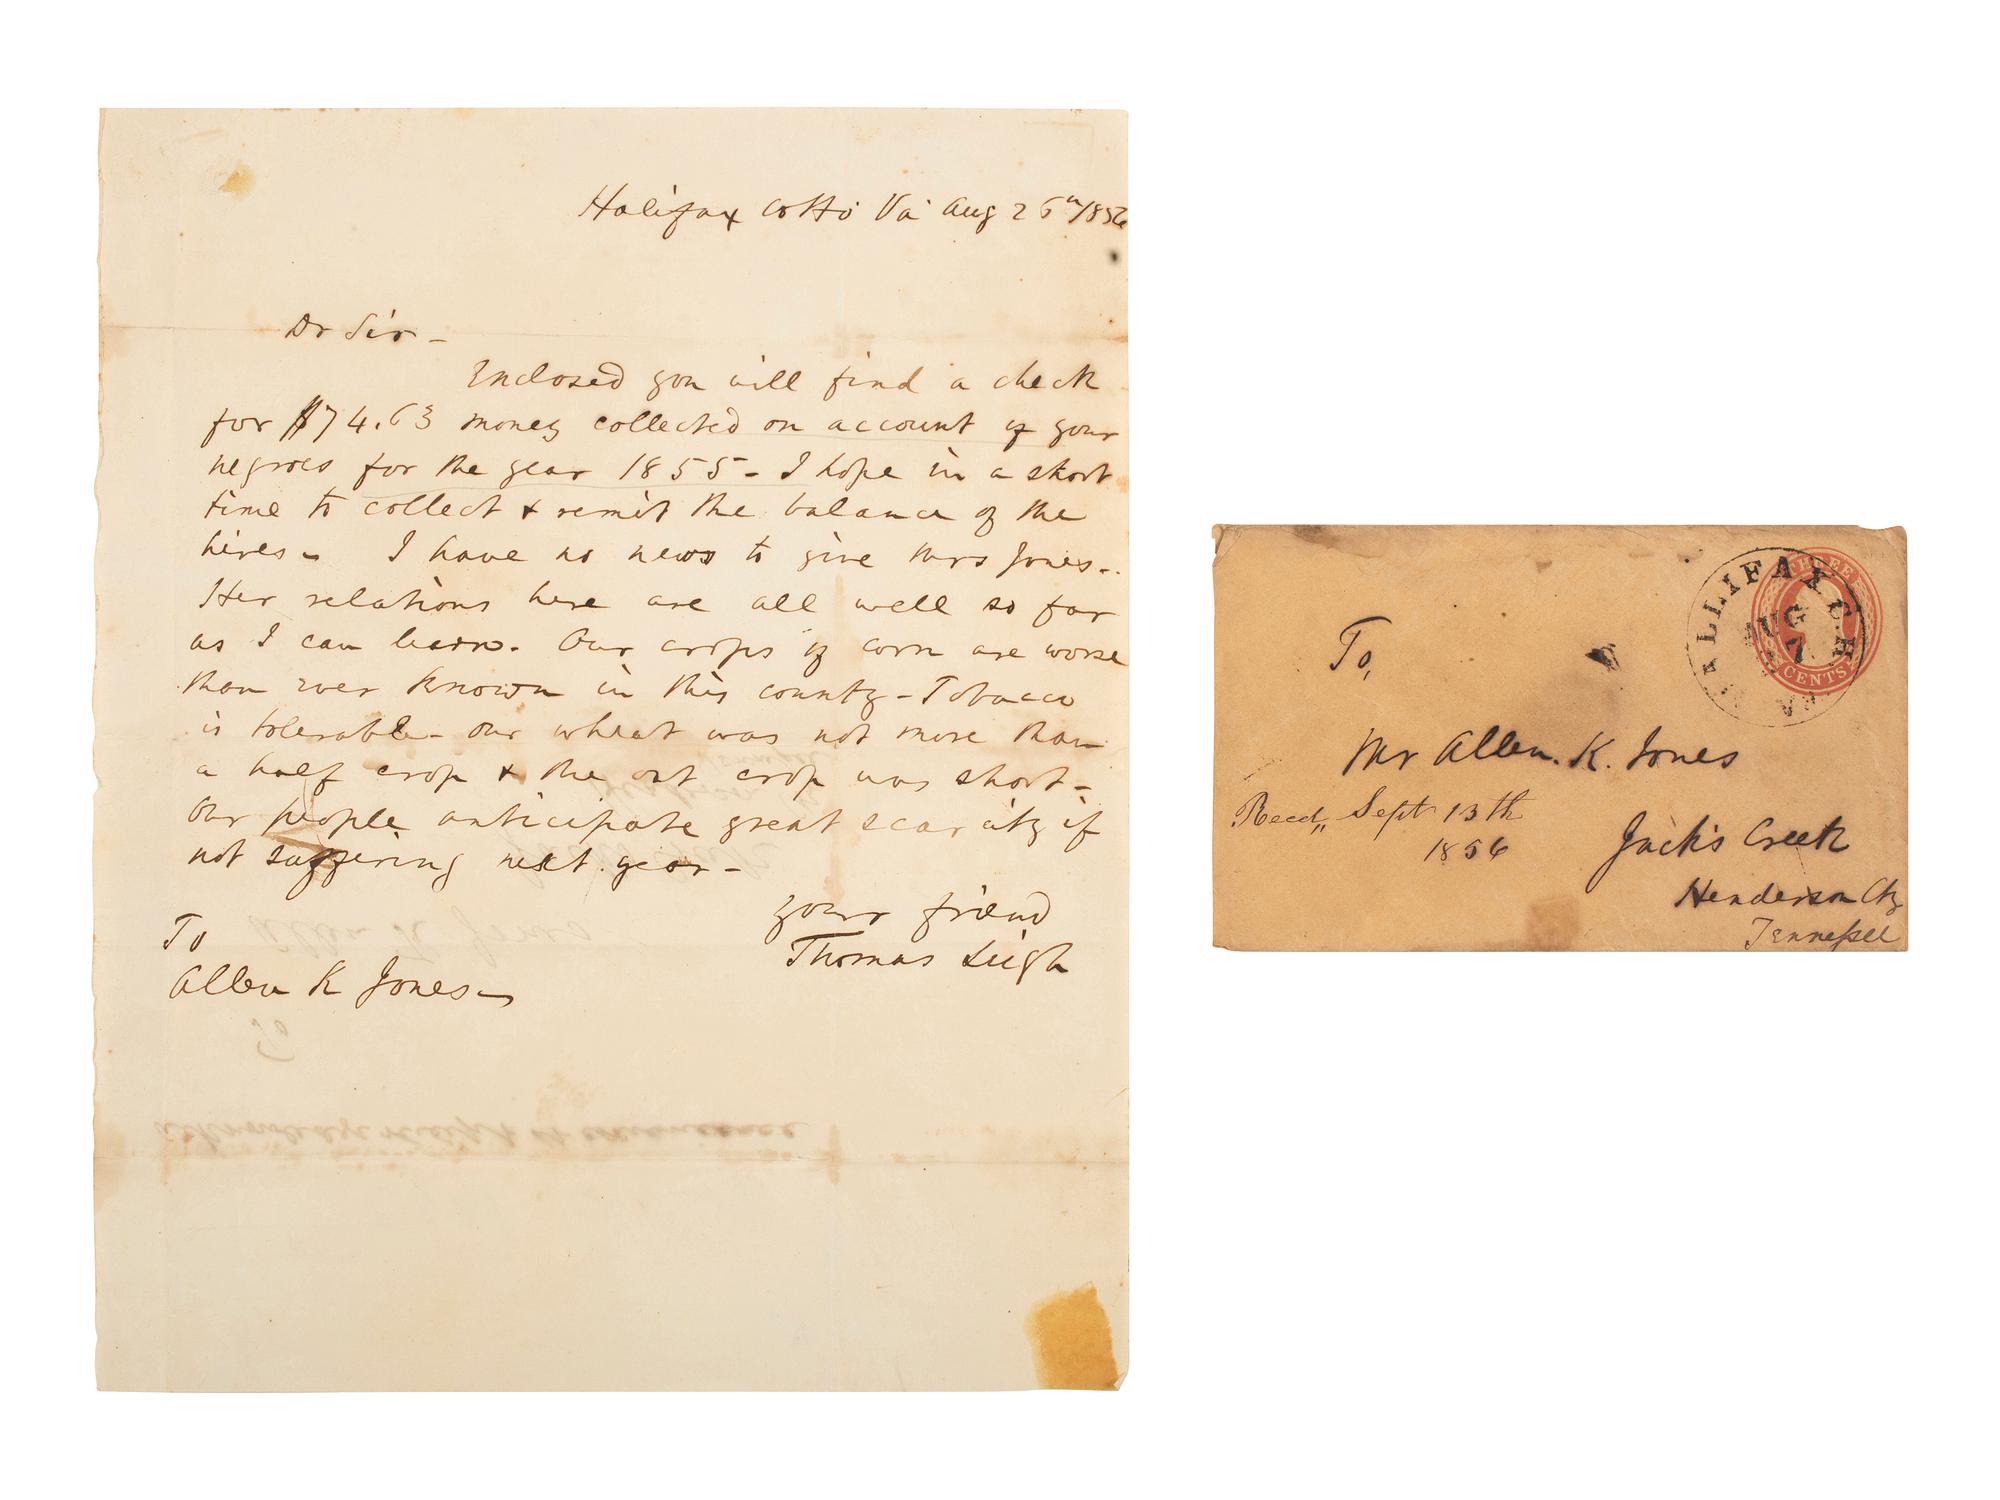 Halifax Co Ho Va Aug 26th/1856
Dr Sir -
Enclosed you will find a check
for $74.63 money collected on account of your
negroes for the year 1855 - I hope in a short
time to collect & remit the balance of the
hires - I have no news to give Mrs Jones -
Her relations here are all well so far
as I can learn. Our crops of corn are worse
than ever known in this county - Tobacco
is tolerable - our wheat was not more than
a half crop & the oat crop was short -
Our people anticipate great scarcity if
not suffering next year -
your friend
Thomas Leigh
To
Allen K Jones -
To
HALIFAX C.H.
AUG
7
VA
THREE
CENTS
To,
Mr Allen. K. Jones
Recd,, Sept 13th
1856
Jack's Creek
Henderson Cty
Tennessee